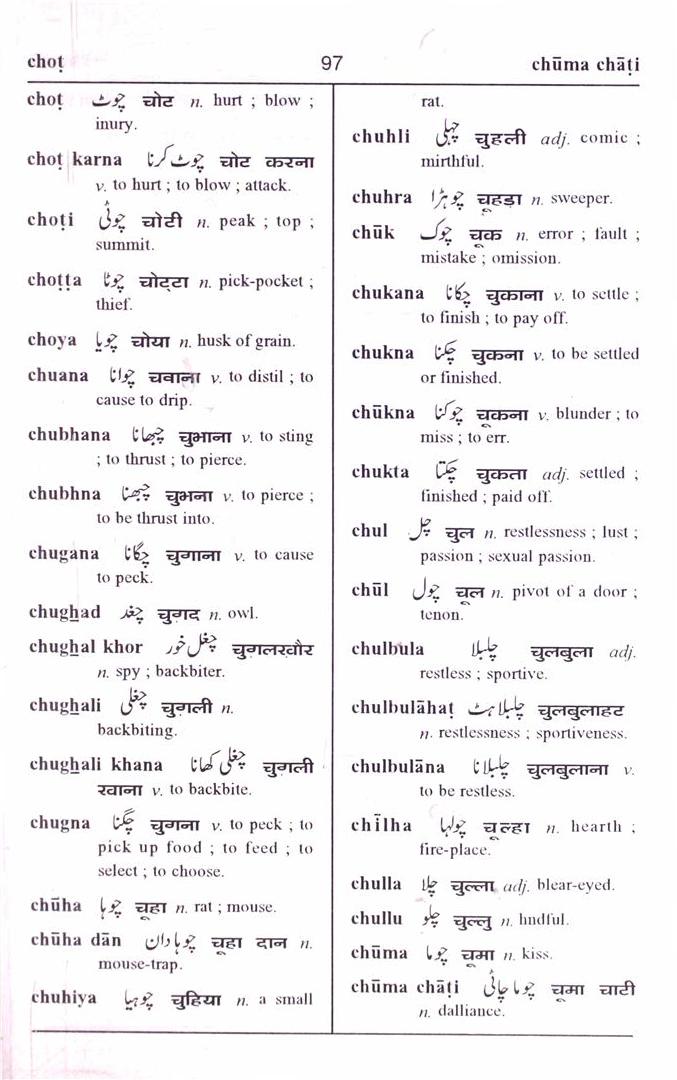 choṭ 97 chūma chāṭi
choṭ چوٹ चोट n. hurt ; blow ;
inury.
choṭ karna چوٹ کرنا चोट करना
v. to hurt ; to blow ; attack.
choṭi چوٹی चोटी n. peak ; top ;
summit.
choṭṭa چوٹا चोट्टा n. pick-pocket ;
thief.
choya چویا चोया n. husk of grain.
chuana چوانا चवाना v. to distil ; to
cause to drip.
chubhana چبھانا चुभाना v. to sting
; to thrust ; to pierce.
chubhna چبھنا चुभना v. to pierce ;
to be thrust into.
chugana چگانا चुगाना v. to cause
to peck.
chughad چغد चुगद n. owl.
chughal khor چغل خور चुग़लख़ौर
n. spy ; backbiter.
chughali چغلی चुग़ली n.
backbiting.
chughali khana چغلی کھانا चुग़ली
खाना v. to backbite.
chugna چگنا चुगना v. to peck ; to
pick up food ; to feed ; to
select ; to choose.
chūha چوہا चूहा n. rat ; mouse.
chūha dān چوہا دان चूहा दान n.
mouse-trap.
chuhiya چوہیا चुहिया n. a small
rat.
chuhli چہلی चुहली adj. comic ;
mirthful.
chuhra چوہڑا चूहड़ा n. sweeper.
chūk چوک चूक n. error ; fault ;
mistake ; omission.
chukana چکانا चुकाना v. to settle ;
to finish ; to pay off.
chukna چکنا चुकना v. to be settled
or finished.
chūkna چوکنا चूकना v. blunder ; to
miss ; to err.
chukta چکتا चुकता adj. settled ;
finished ; paid off.
chul چل चुल n. restlessness ; lust ;
passion ; sexual passion.
chūl چول चूल n. pivot of a door ;
tenon.
chulbula چلبلا चुलबुला adj.
restless ; sportive.
chulbulāhaṭ چلبلاہٹ चुलबुलाहट
n. restlessness ; sportiveness.
chulbulāna چلبلانا चुलबुलाना v.
to be restless.
chīlha چولہا चूल्हा n. hearth ;
fire-place.
chulla چلا चुल्ला adj. blear-eyed.
chullu چلو चुल्लु n. hndful.
chūma چوما चूमा n. kiss.
chūma chāṭi چوما چاٹی चूमा चाटी
n. dalliance.